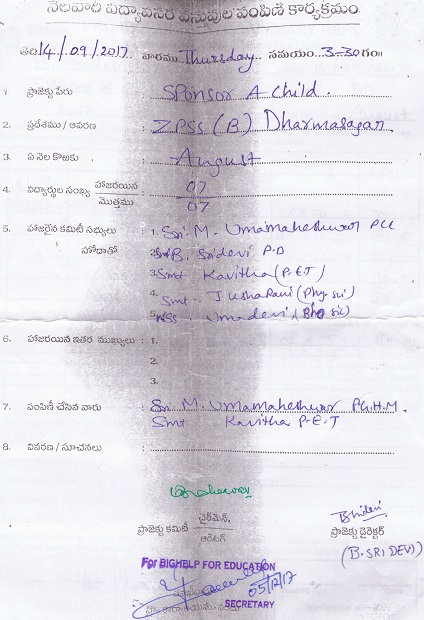 నెలవారీ విద్యావసర వస్తువుల పంపిణీ కార్యక్రమం
తేది 14/09/2017 వారము Thursday సమయం 3-30 గం॥
1 ప్రాజెక్టు పేరు Sponsor A Child.
2. ప్రదేశము / ఆవరణ ZPSS (B) Dharmasagar.
3. ఏ నెల కొఱకు August
4. విద్యార్థుల సంఖ్య హాజరయిన 07
మొత్తము 07
5. హాజరైన కమిటీ సభ్యులు 1. Sri M. Umamaheshwar
హోదాతో 2. Smt B. Sridevi P.D
3. Smt Kavitha (P.E.T)
4. Smt. TushaRani (Phy. sci)
5. Umadevi (Bio sci)
6. హాజరయిన ఇతర ముఖ్యులు : 1.
2.
3.
7. పంపిణీ చేసిన వారు : Sri M. Umamaheshwar P.G.H.M.
Smt Kavitha P.E.T
8. వివరణ / సూచనలు :
ప్రాజెక్టు కమిటీ ఛైర్మెన్, ప్రాజెక్టు డైరెక్టర్
ఆడిటర్
(B. SRI DEVI)
For BIGHELP FOR EDUCATION
05/12/17
SECRETARY